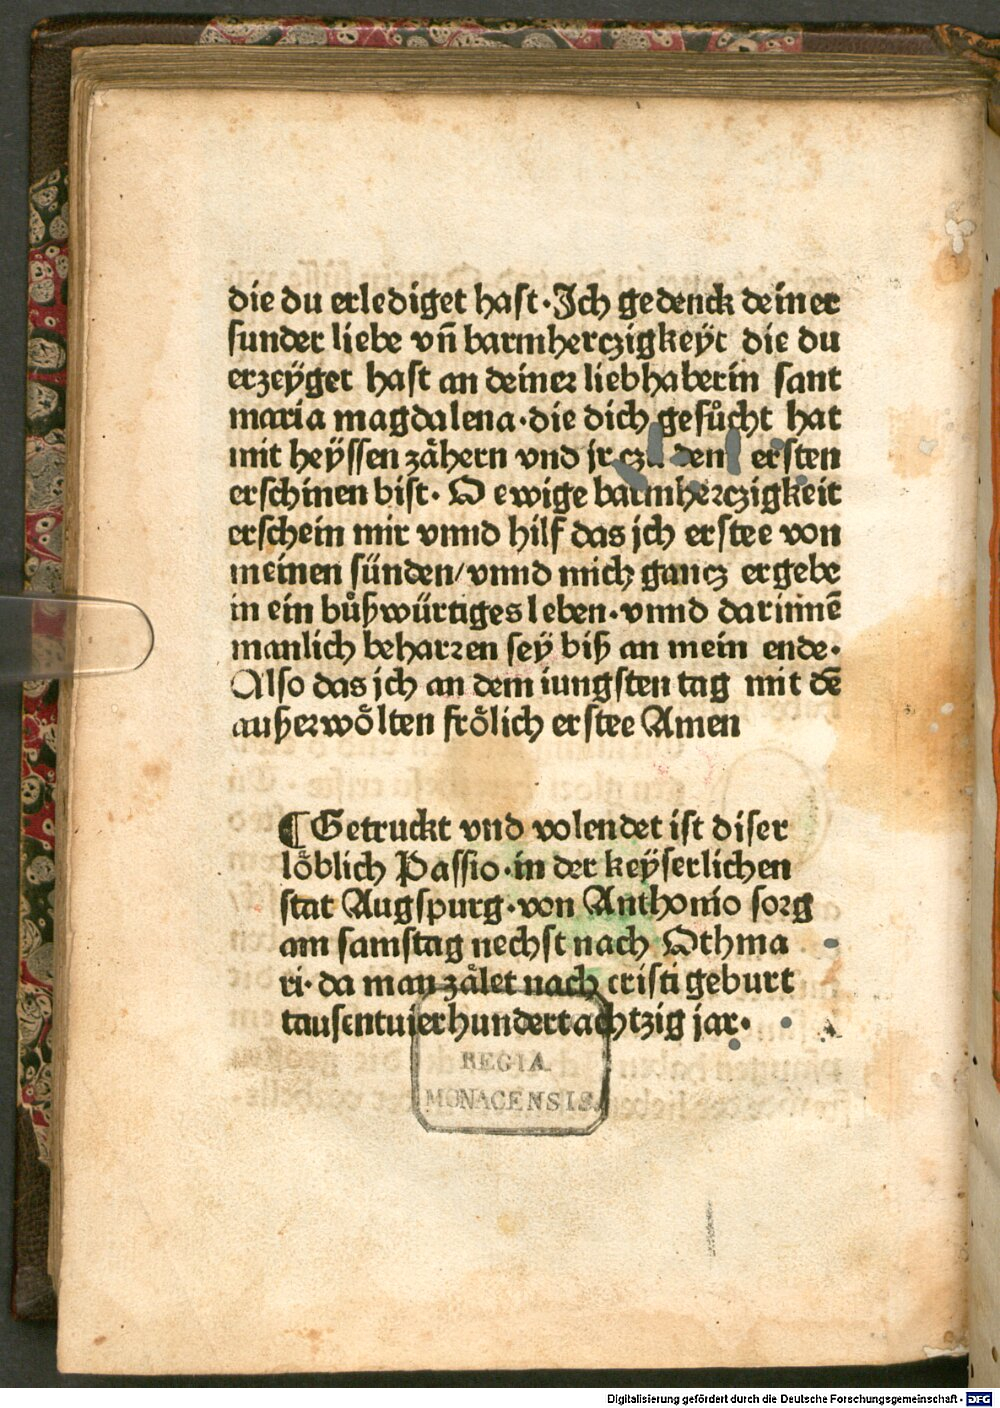 die du erlediget hast·Jch gedenck deiner
sunder liebe vn̄ barmherczigkeÿt die du
erzeÿget hast an deiner liebhaberin sant
maria magdalena·die dich gesůcht hat
mit heÿssen zåhern vnd jr czu dem ersten
erschinen bist· O ewige barmherczigkeit
erschein mir vnnd hilf das jch erstee von
meinen sünden/vnnd mich gancz ergebe
in ein bůßwürtiges leben·vnnd darinnē
manlich beharren seÿ biß an mein ende·
Also das jch an dem iungsten tag mit dē
außerwölten frölich erstee Amen
¶ Getruckt vnd volendet ist diser
löblich Passio·in der keÿserlichen
stat Augspurg·von Anthonio sorg
am samstag nechst nach Othma
ri·da man zålet nach cristi geburt
tausentuierhundertachtzig jar·
REGIA
MONACENSIS
Digitalisierung gefördert durch die Deutsche Forschungsgemeinschaft - DFG